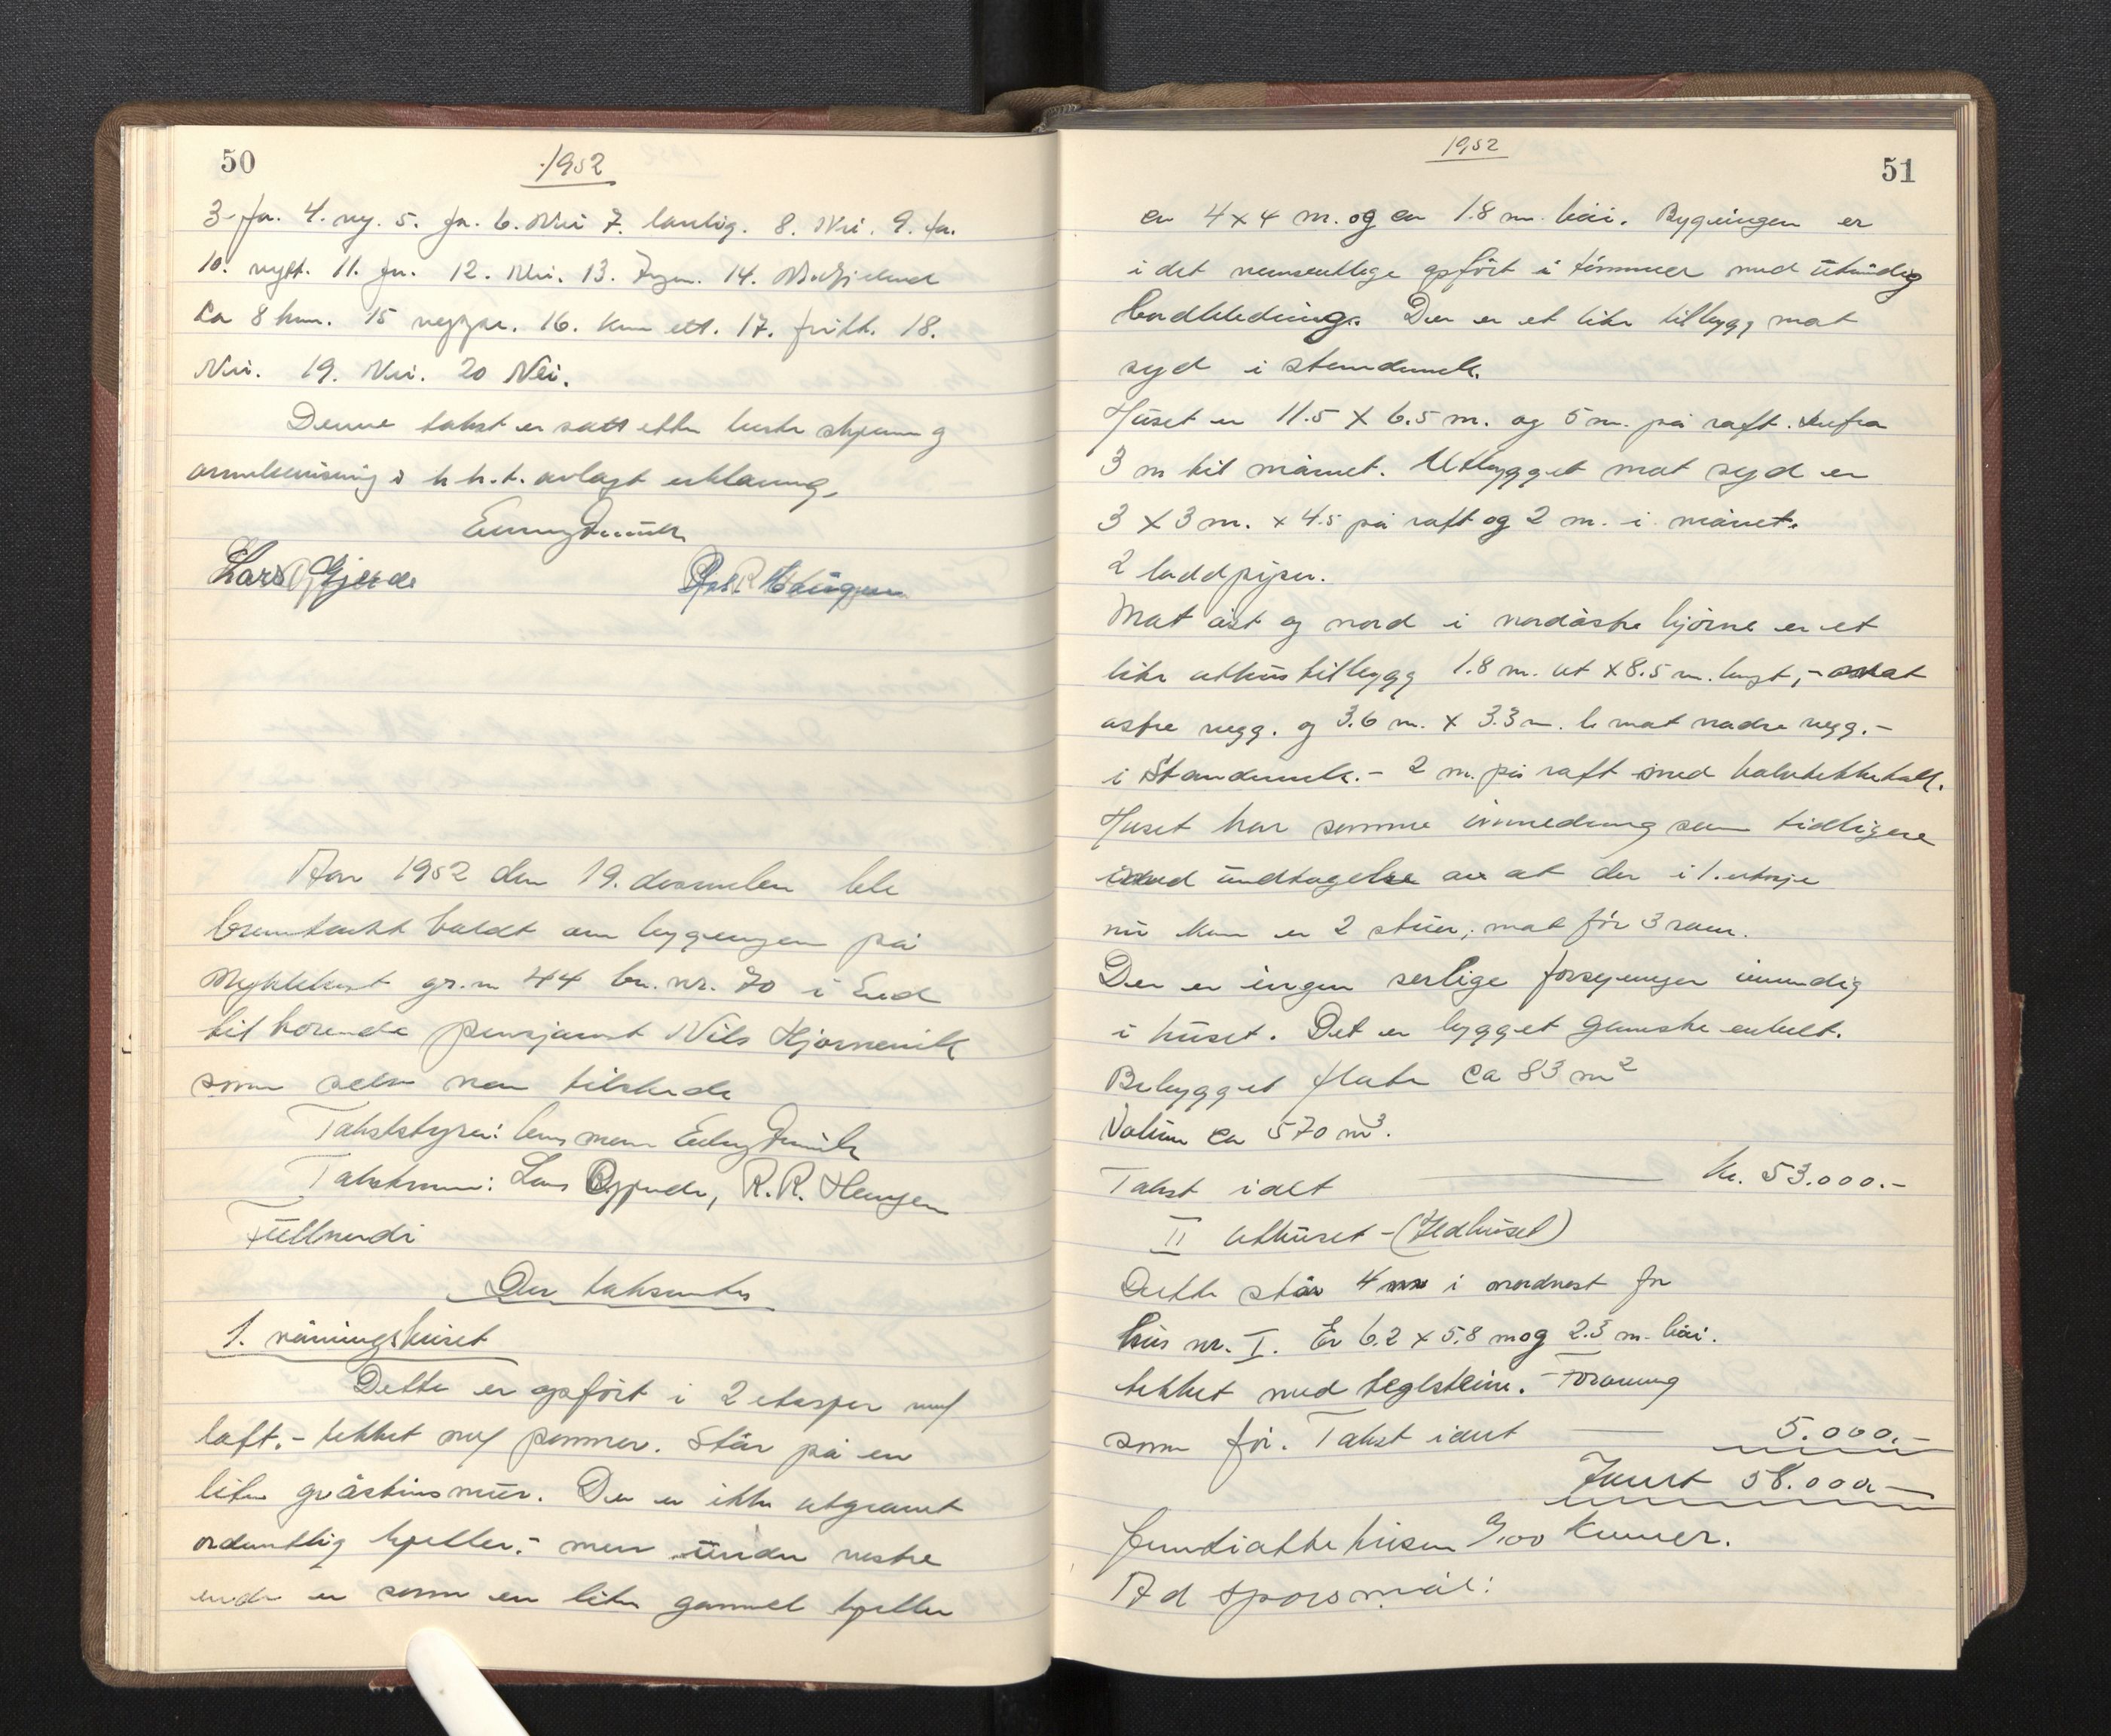 50
1952
3. ja. 4. ny. 5. ja. 6. Nei 7. lanlig. 8. Nei. 9. ja.
10. nytt. 11. ja. 12. Nei. 13. Ingen. 14.
ca 8 km. 15 neppe. 16. kun ett. 17. fritt. 18.
Nei. 19. Nei. 20 Nei.
Denne takst er satt etter beste skjønn og
overbevisning i h.h.t. avlagt erklæring.
Lars O Gjerde
R Haugen
Aar 1952 den 19. desember ble
branntakst holdt over bygningen på
Myklebust gr.nr 44 br.nr. 70 i Eid
tilhørende pensjonist Nils Hjørnevik
som selv var tilstede
Takststyrer: lensmann
Takstmenn: Lars O Gjerde, R.R. Haugen
Fullmendi
Der taksertes
1. våningshuset
Dette er opført i 2 etasjer med
loft. - tekket med panner. Står på en
liten gråsteinsmur. Der er ikke utgravet
ordentlig kjeller, - men under vestre
ende er som en liten gammel kjeller
1952
51
ca 4 x 4 m. og ca 1.8 m. høi. Bygningen er
i det vesentlige opført i tømmer med utvendig
bordkledning. Der er et lite tilbygg mot
syd i standverk.
Huset er 11.5 X 6.5 m. og 5 m. på raft. Derfra
3 m til mønet. Utbygget mot syd er
3 X 3 m. x 4.5 på raft og 2 m. i mønet.
2 loddpiper.
Mot øst og nord i nordøstre hjørne er et
lite uthustilbygg 1.8 m. ut x 8.5 m. langt, - mot
østre vegg. og 3.6 m. x 3.3 m. b mot nordre vegg. -
i Standverk. - 2 m. på raft med halvtekkehall.
Huset har samme innredning som tidligere
med undtagelse av at der i 1. etasje
nu kun er 2 stuer, mot før 3 rom.
Der er ingen serlige forsyninger innvendig
i huset. Det er bygget ganske enkelt.
Bebygget flate ca 83 m²
Volum ca 570 m³.
Takst i alt kr. 53.000.-
II Uthuset - (Vedhuset)
Dette står 4 m i nordvest for
hus nr. I. Er 6.2 x 5.8 m og 2.3 m. høi.
tekket med teglsteine. - Forøvrig
som før. Takst i alt 5.000.-
Ialt 58.000.-
husene 0/00 kroner.
Ad spørsmål: